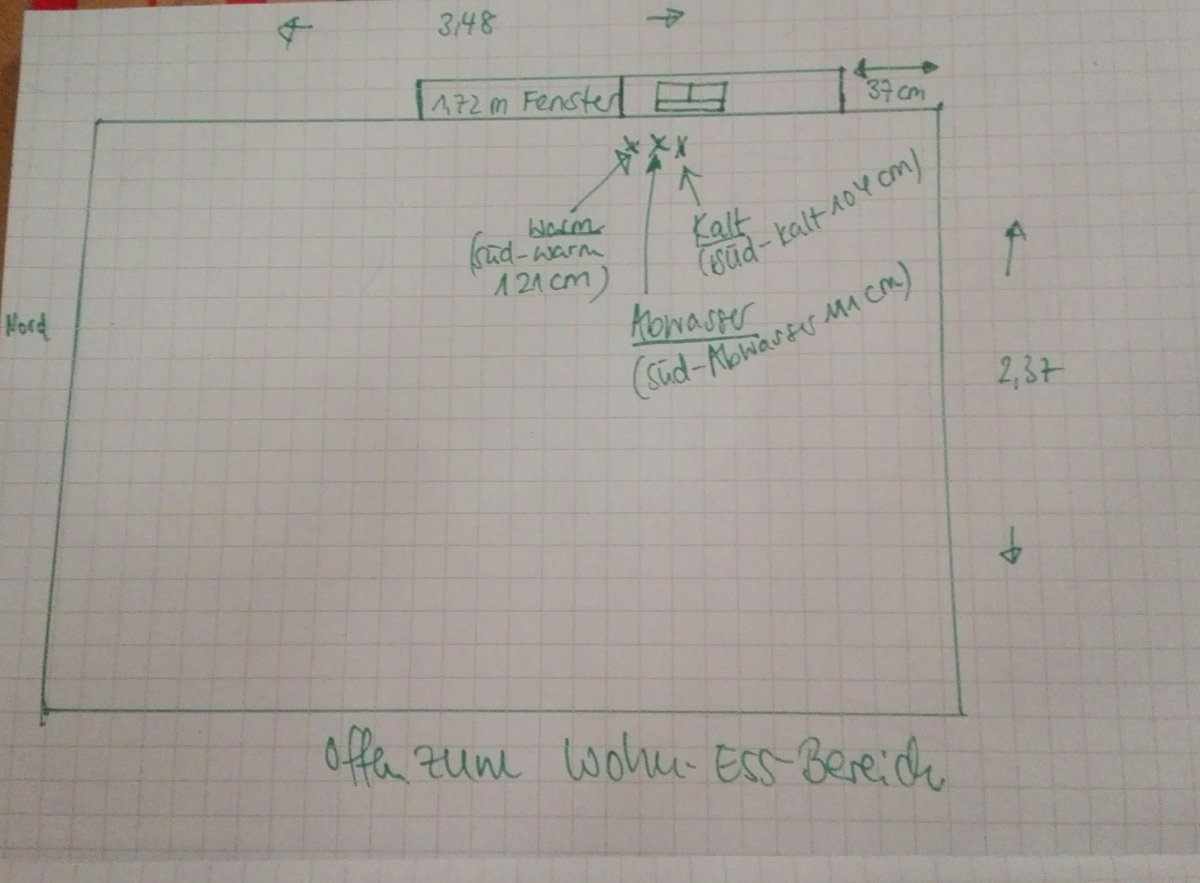 3,48
1,72 m Fenster
37 cm
Warm
(süd-warm
121 cm)
Kalt
(süd-kalt 104 cm)
Abwasser
(süd-Abwasser 111 cm)
Nord
2,37
Offen zum Wohn-Ess-Bereich